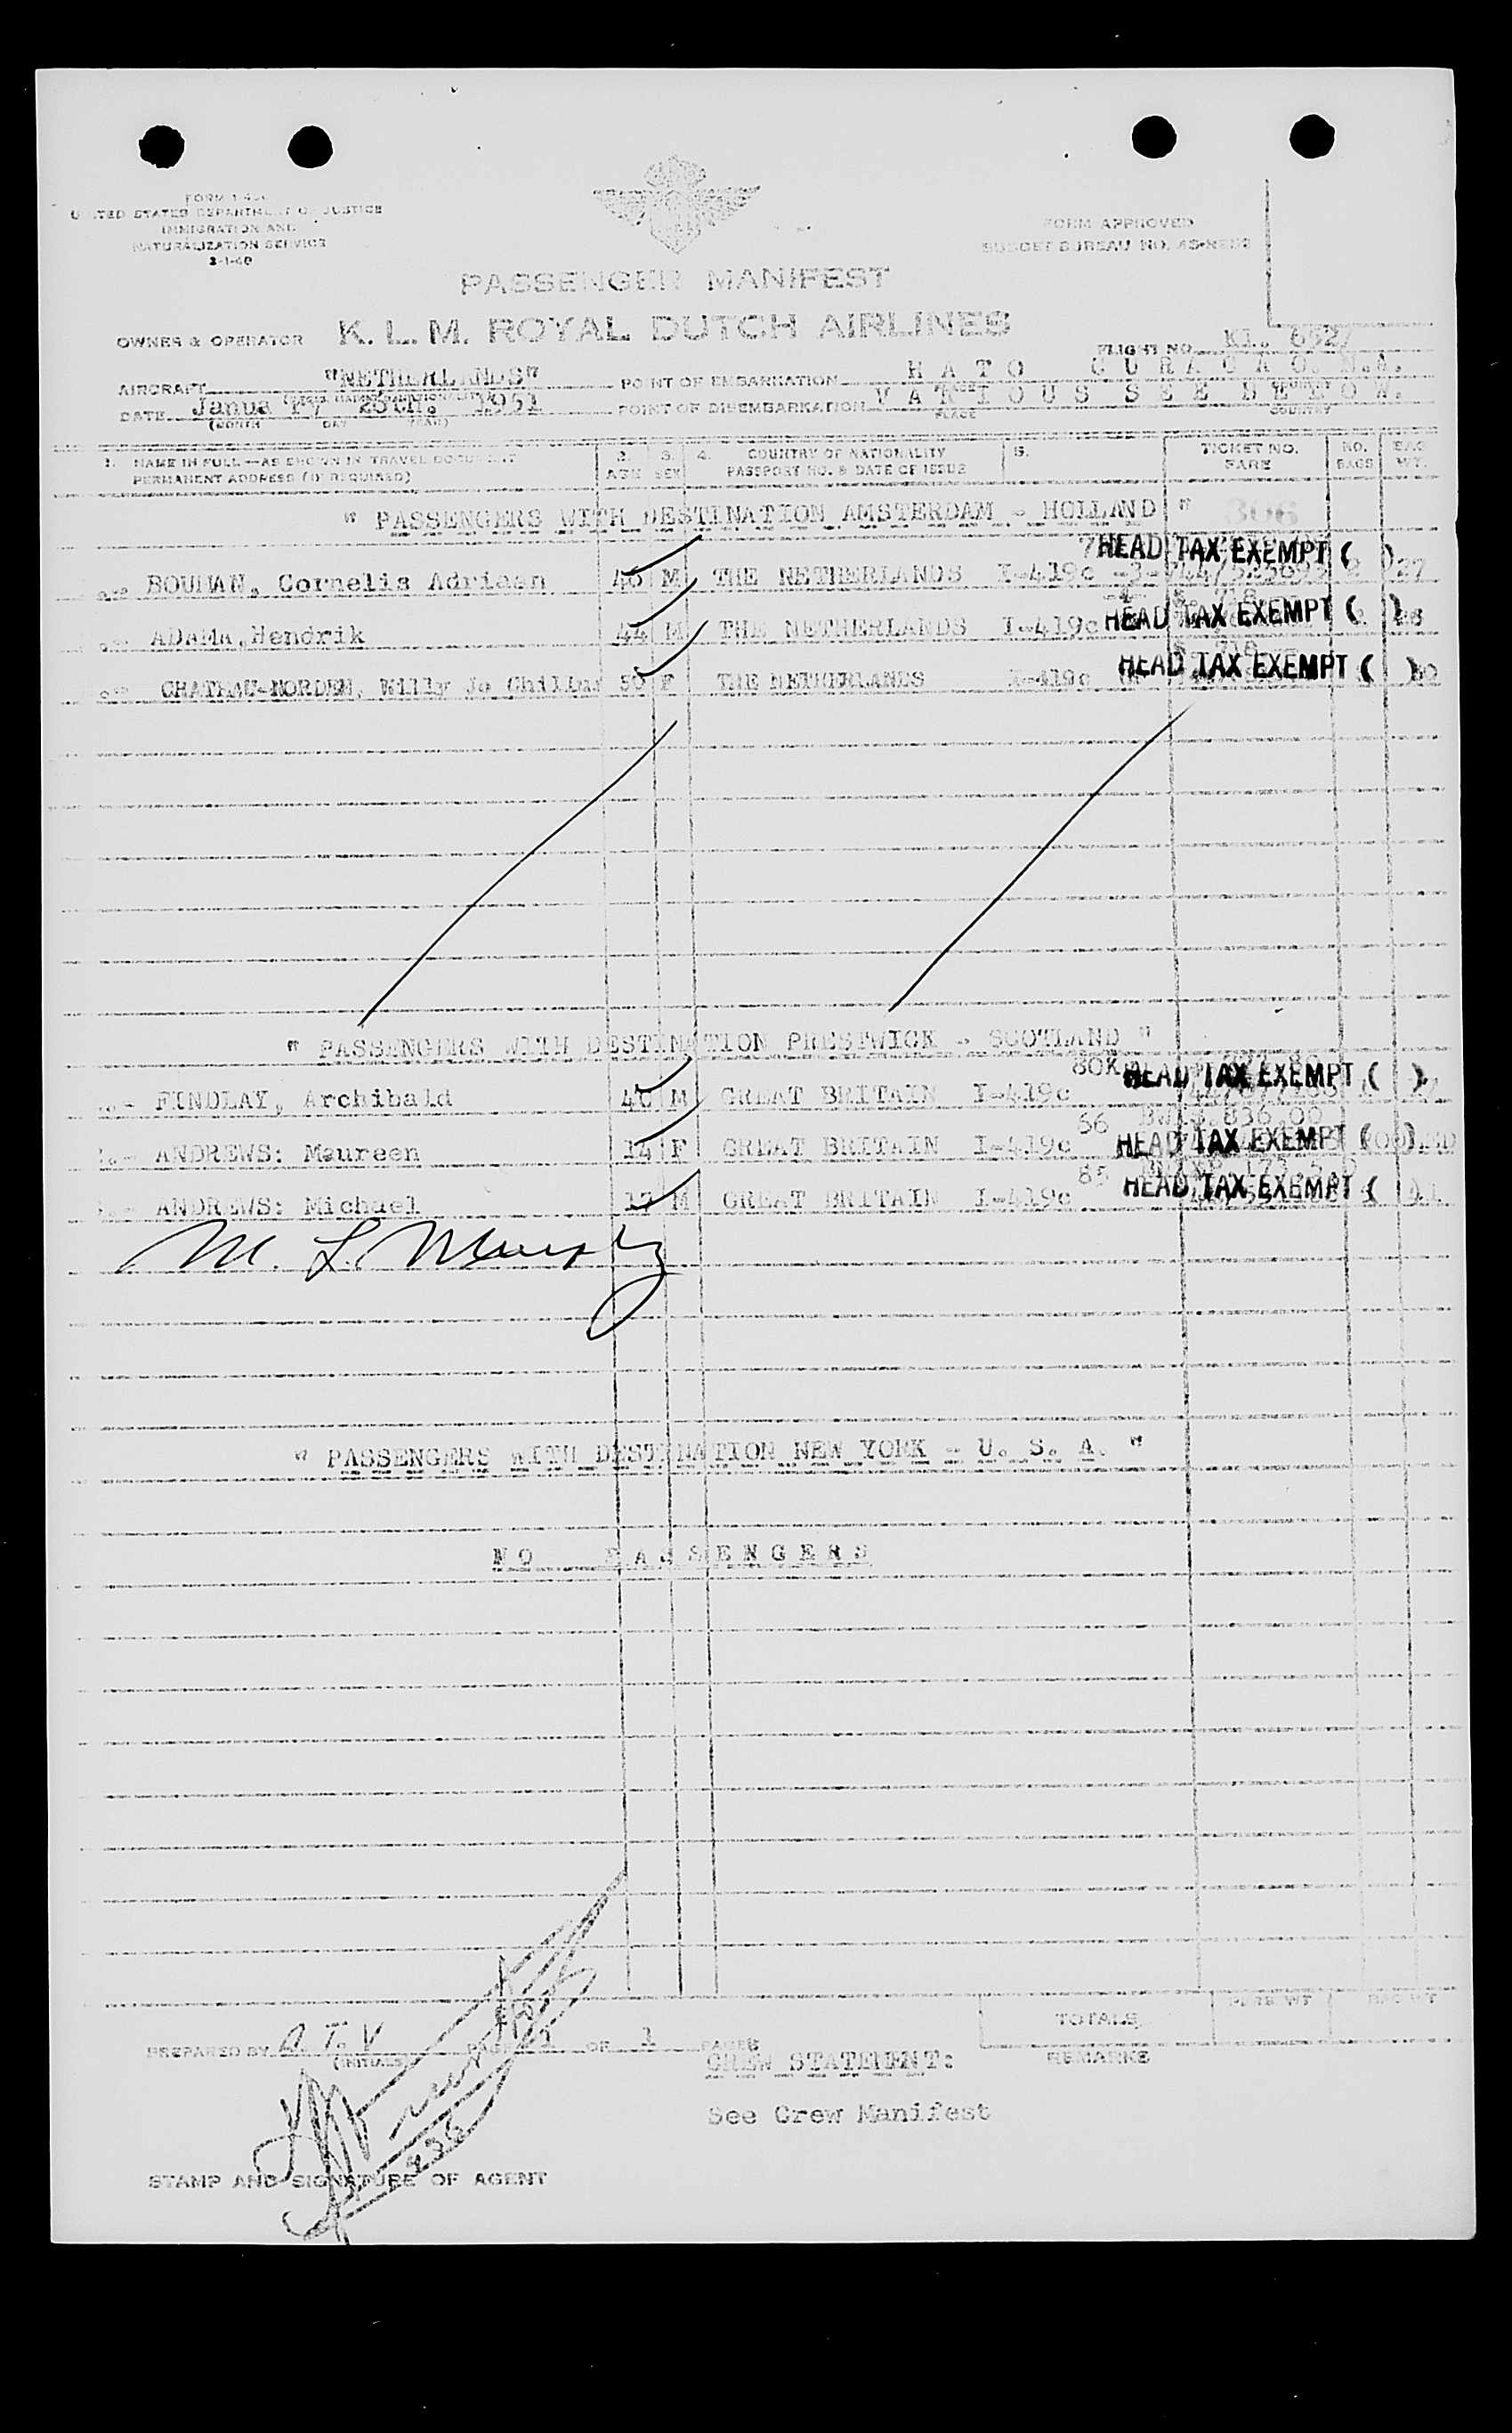 UNITED STATES DEPARTMENT OF JUSTICE
IMMIGRATION AND
NATURALIZATION SERVICE
FORM APPROVED
BUDGET BUREAU NO.
PASSENGER MANIFEST
OWNER & OPERATOR K.L.M. ROYAL DUTCH AIRLINES
FLIGHT NO.
AIRCRAFT "NETHERLANDS" POINT OF EMBARKATION HATO CURACAO. N.A.
DATE January 1951 POINT OF DISEMBARKATION VARIOUS SEE BELOW.
(MONTH DAY YEAR) PLACE COUNTRY
1. NAME IN FULL—AS SHOWN IN TRAVEL DOCUMENT 2. 3. 4. COUNTRY OF NATIONALITY 5. TICKET NO. NO. BAG
PERMANENT ADDRESS (IF REQUIRED) AGE SEX PASSPORT NO. & DATE OF ISSUE FARE BAGS WT.
" PASSENGERS WITH DESTINATION AMSTERDAM - HOLLAND " 306
HEAD TAX EXEMPT ( )
BOUMAN, Cornelis Adriaan M THE NETHERLANDS I-419c 27
ADAMA, Hendrik 44 M THE NETHERLANDS I-419c HEAD TAX EXEMPT ( )
CHATEAU-NORDEN, Willy Jo F THE NETHERLANDS I-419c HEAD TAX EXEMPT ( )
" PASSENGERS WITH DESTINATION PRESTWICK - SCOTLAND "
FINDLAY, Archibald M GREAT BRITAIN I-419c HEAD TAX EXEMPT ( )
ANDREWS: Maureen 14 F GREAT BRITAIN I-419c 66 HEAD TAX EXEMPT ( )
ANDREWS: Michael 17 M GREAT BRITAIN I-419c 85 HEAD TAX EXEMPT ( )
M. L. Murphy
" PASSENGERS WITH DESTINATION NEW YORK - U. S. A. "
NO PASSENGERS
TOTALS
PREPARED BY A.T.V PAGE 1 OF 1 PAGES
(INITIALS)
CREW STATEMENT: REMARKS
See Crew Manifest
STAMP AND SIGNATURE OF AGENT